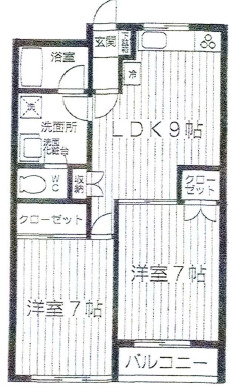 浴室
玄関
下駄箱
冷
洗
洗面所
洗面
化粧台
LDK9帖
WC
収納
クロー
ゼット
クローゼット
洋室7帖
洋室7帖
バルコニー